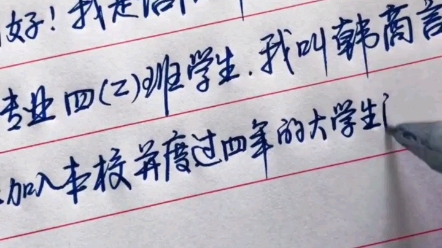 好！我是
专业四(2)班学生.我叫韩商言
加入本校并度过四年的大学生